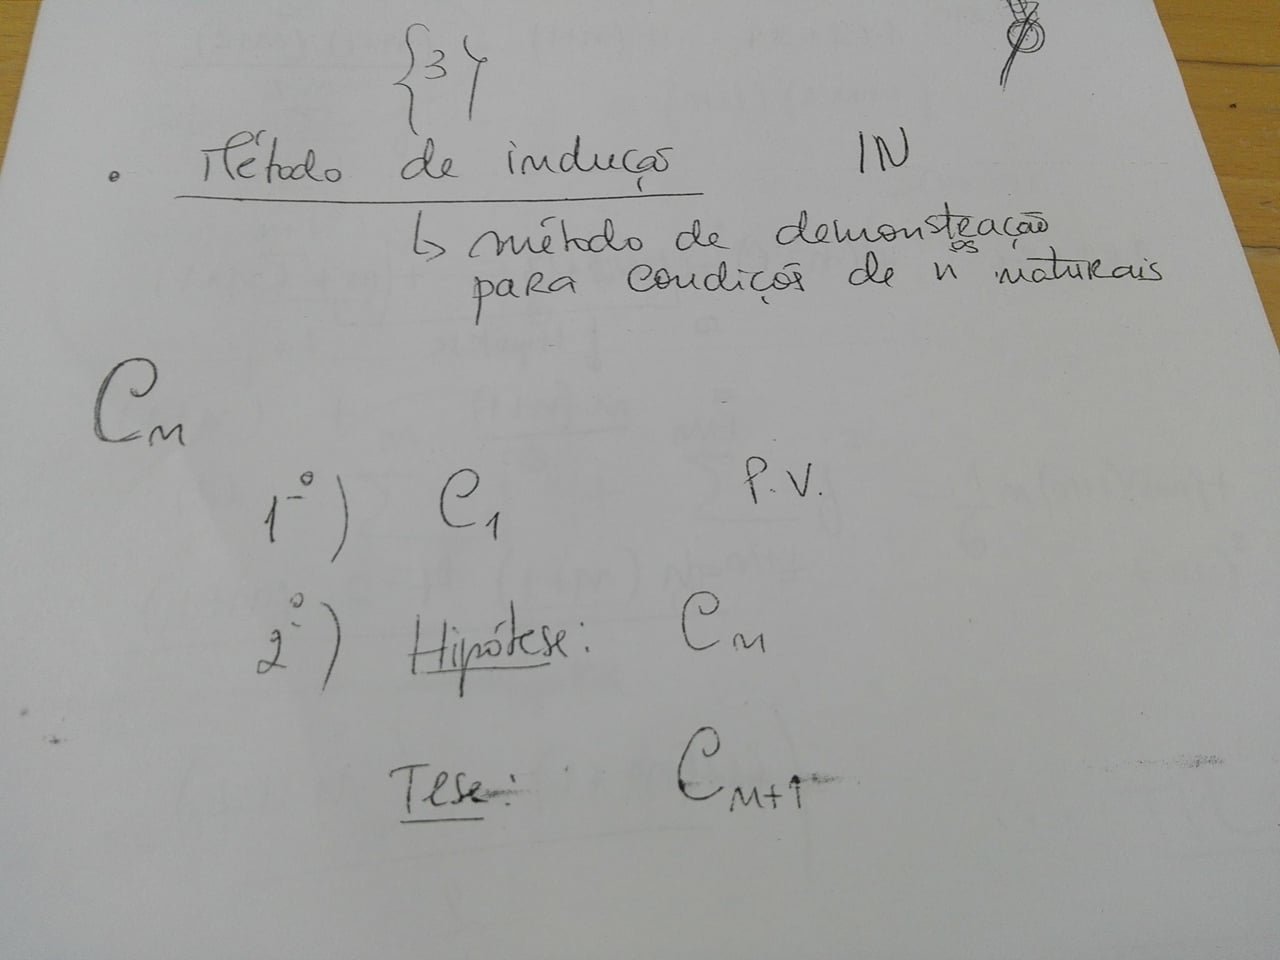 {3}
• Método de indução IN
↳ método de demonstração
para condições de nºs naturais
Cn
1º) C1 P.V.
2º) Hipótese: Cn
Tese: Cn+1